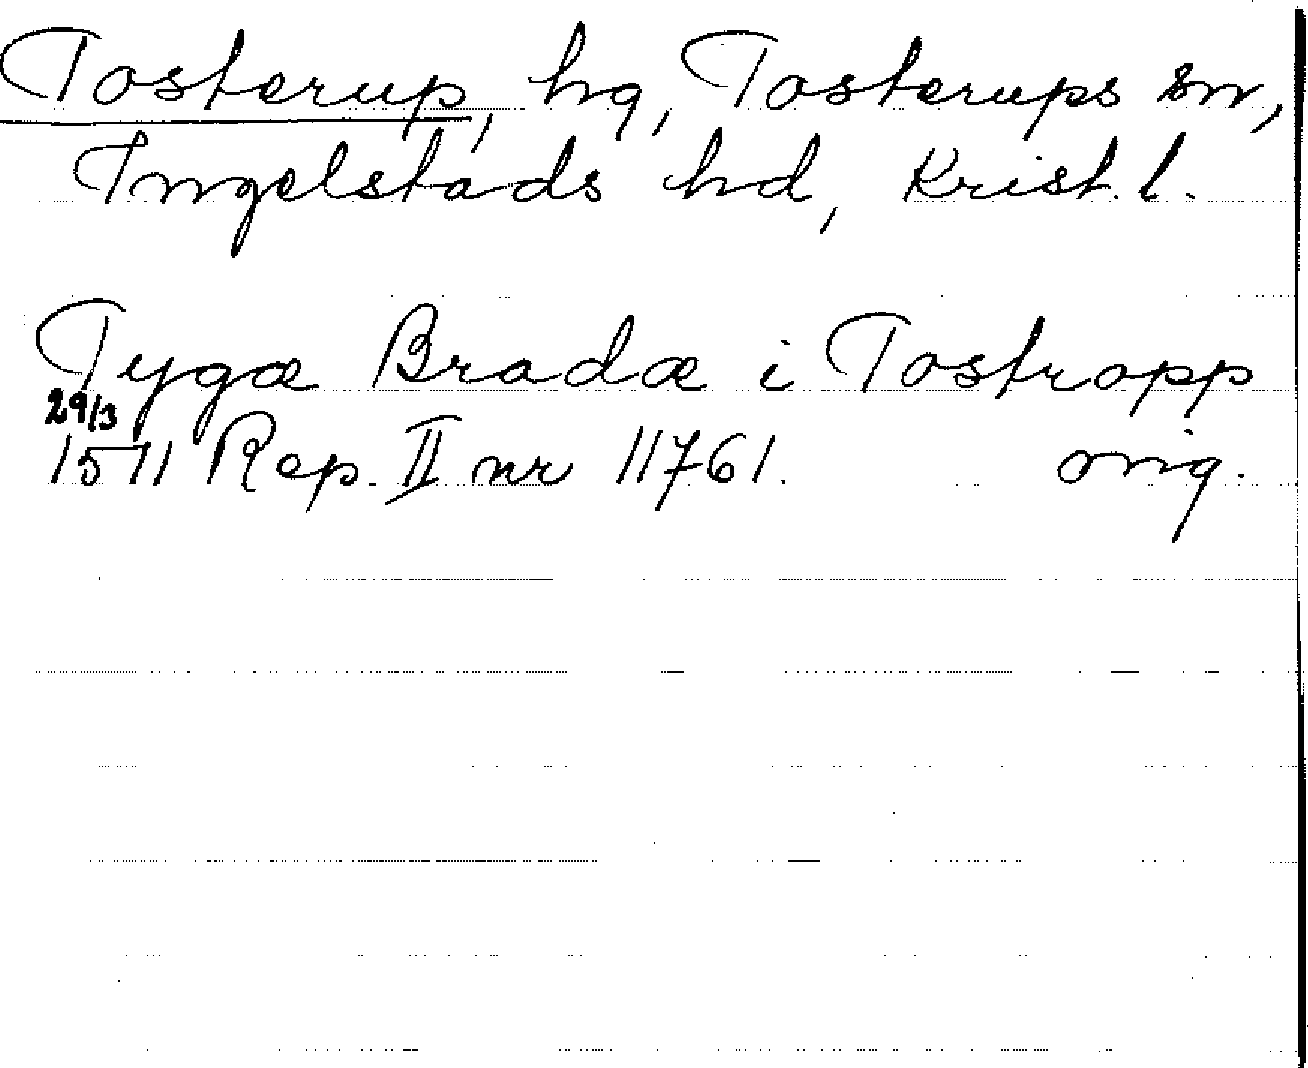 Tosterup, hg, Tosterups sn,
Ingelstads hd, Krist. l.
Tygæ Bradæ i Tostropp
29/3
1511 Rep. II nr 11761. orig.